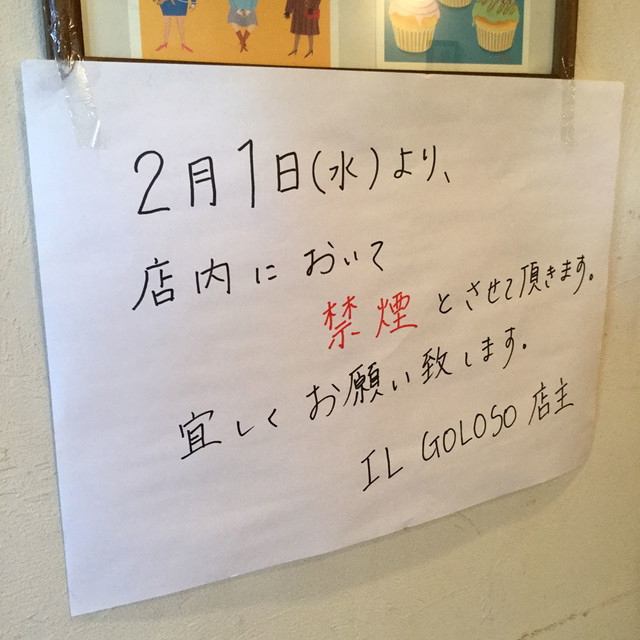 2月1日(水)より、
店内において
禁煙とさせて頂きます。
宜しくお願い致します。
IL GOLOSO 店主